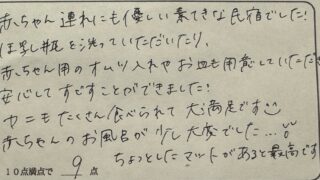 赤ちゃん連れにも優しい素てきな民宿でした!
ほ乳瓶を洗っていただいたり、
赤ちゃん用のオムツ入れやお皿も用意していただき
安心してすごすことができました!
カニもたくさん食べられて大満足です
赤ちゃんのお風呂が少し大変でした…
ちょっとしたマットがあると最高です
10点満点で 9 点